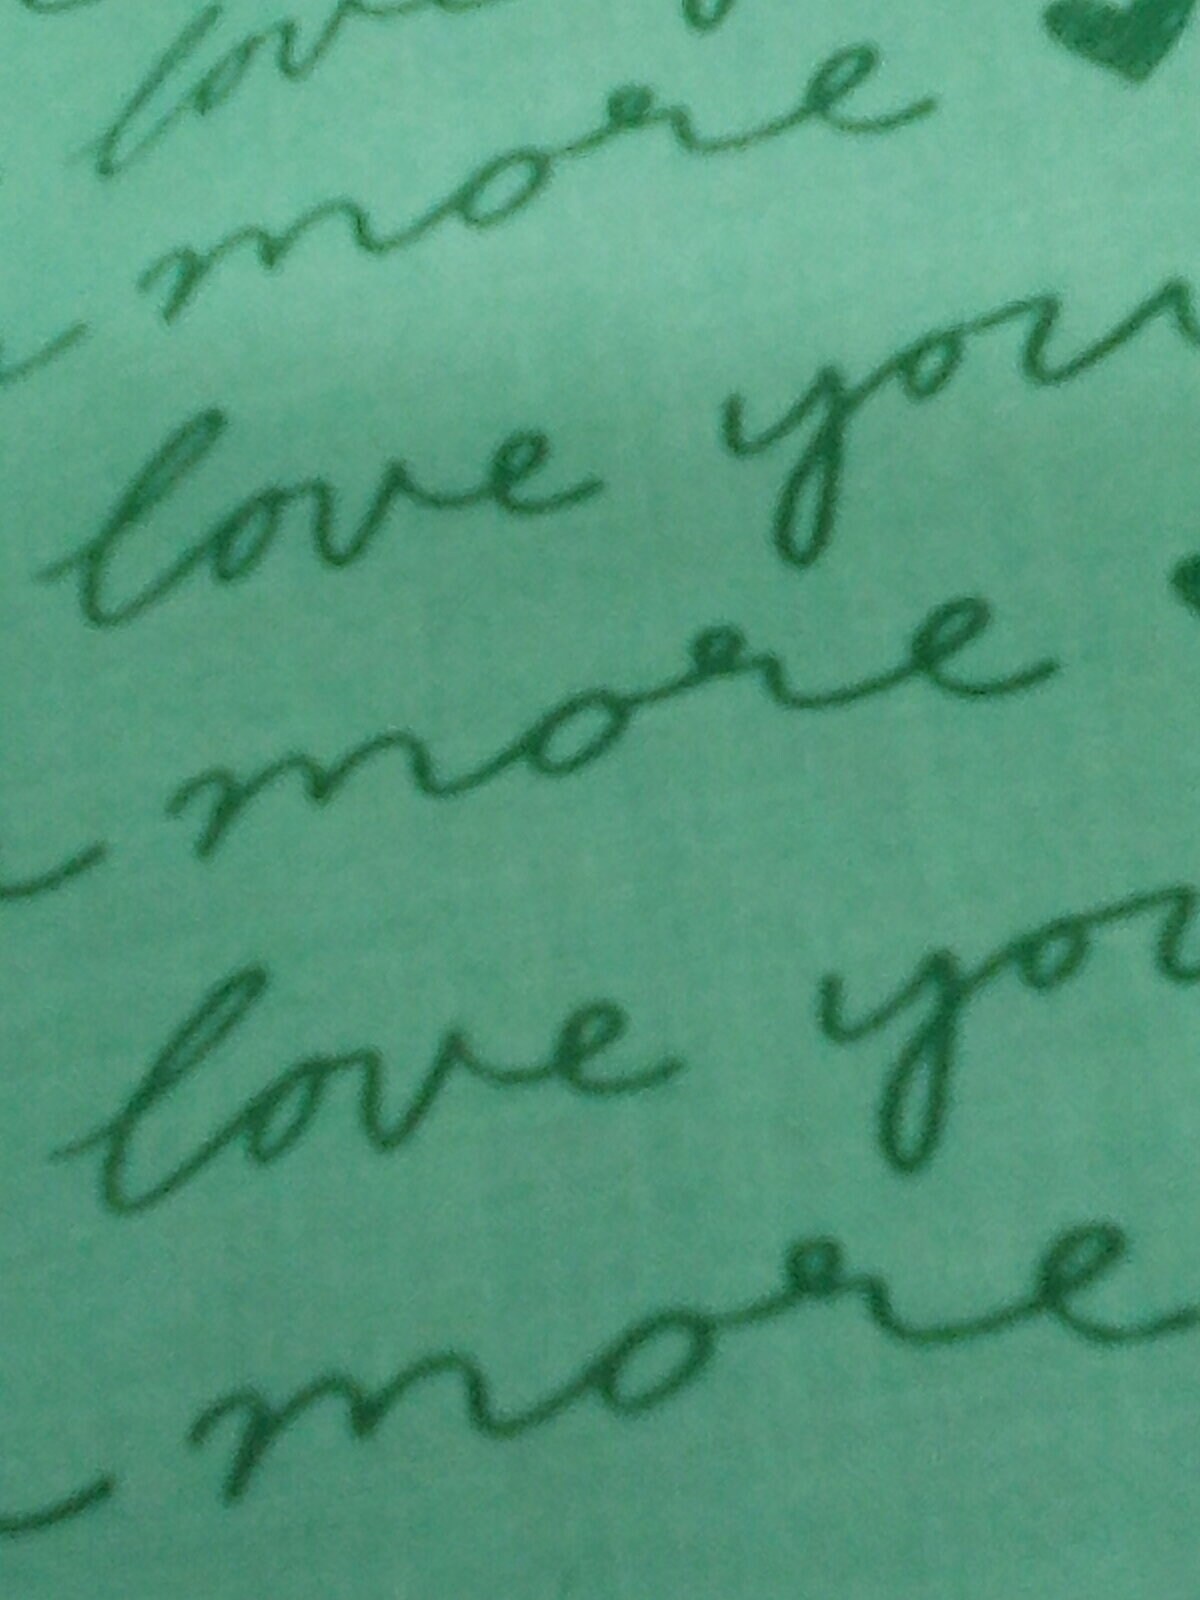 love
more
love you
more
love you
more